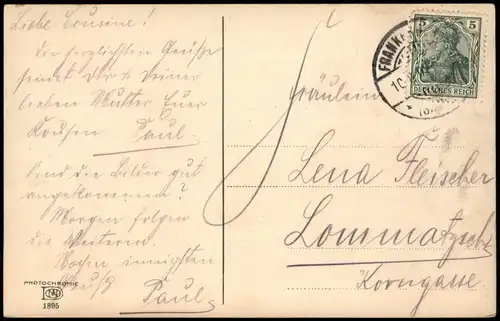 Liebe Cousine!
Die herzlichsten Grüße
sendet Dir & Deiner
lieben Mutter Euer
Paul.
Sind die Bilder gut
angekommen?
Morgen folgen
die Weiteren.
Nochen innigsten
Gruß Paul.
PHOTOCHROMIE
1895
Fräulein
Lena Fleischer
Lommatzsch
Korngasse
FRANKE
10.
5 5
DEUTSCHES REICH